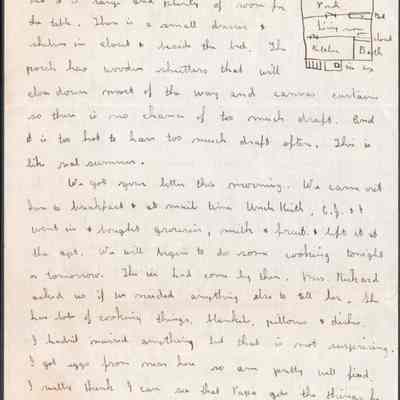 but it is large and plenty of room for
the table. There is a small dresser &
shelves in closet & beside the bed. The
porch has wooden shutters that will
close down most of the way and canvas curtains
so there is no chance of too much draft. And
it is too hot to have too much draft often. This is
like real summer.
We got your letter this morning. We came out
here to breakfast & at mail time Uncle Keith, C.J. & I
went in & bought groceries, milk & fruit & left it at
the apt. We will begin to do some cooking tonight
or tomorrow. The ice had come by then. Mrs. Rickard
asked us if we needed anything else to tell her. She
has lots of cooking things, blankets, pillows & dishes.
I hadn't missed anything but that is not surprising.
I got eggs from near here so am pretty well fixed.
I really think I can see that Papa gets the things he
Porch
Bed
Living room
closet
Kitchen
Bath